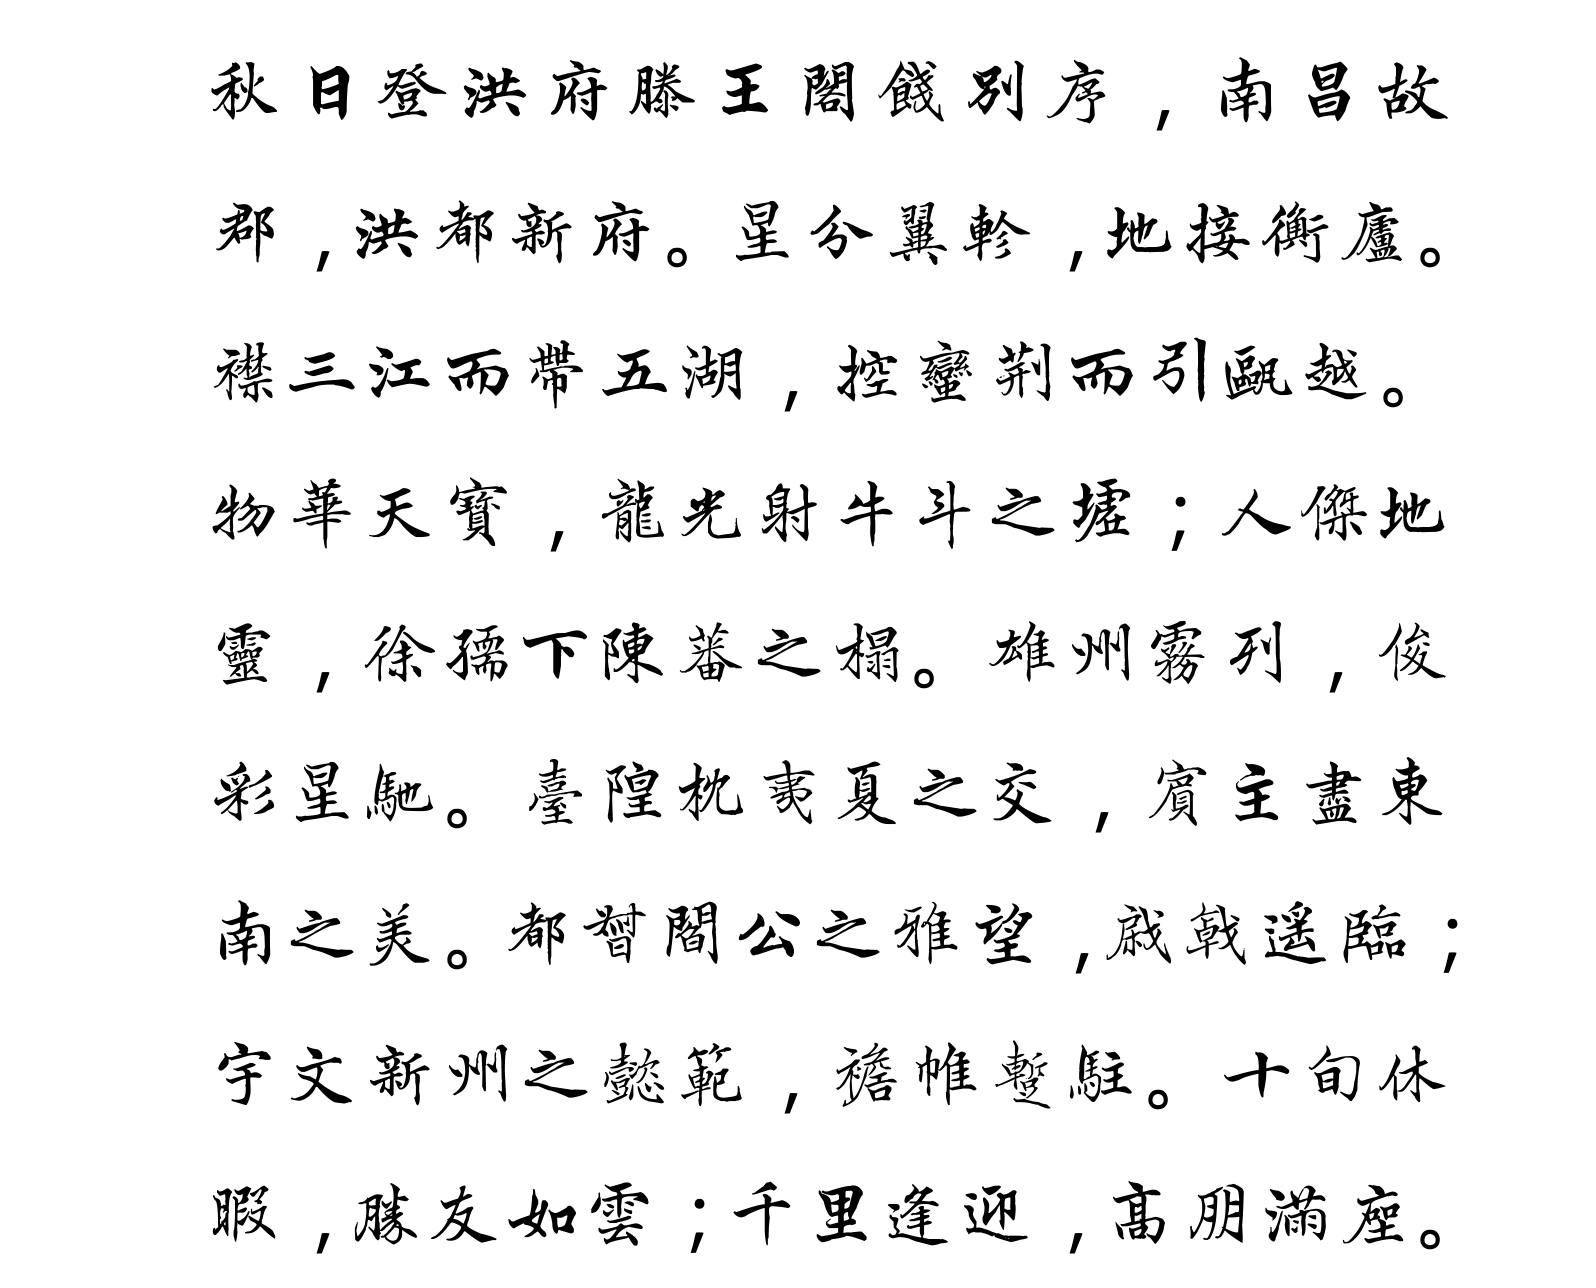 秋日登洪府滕王閣餞別序，南昌故
郡，洪都新府。星分翼軫，地接衡廬。
襟三江而帶五湖，控蠻荊而引甌越。
物華天寶，龍光射牛斗之墟；人傑地
靈，徐孺下陳蕃之榻。雄州霧列，俊
彩星馳。臺隍枕夷夏之交，賓主盡東
南之美。都督閻公之雅望，棨戟遥臨；
宇文新州之懿範，襜帷暫駐。十旬休
暇，勝友如雲；千里逢迎，高朋滿座。